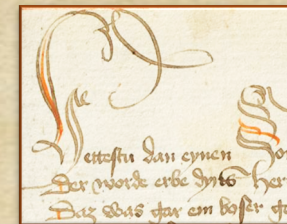 Hettestu dan eynen
Der worde erbe dyns her
Daz was gar ein boser